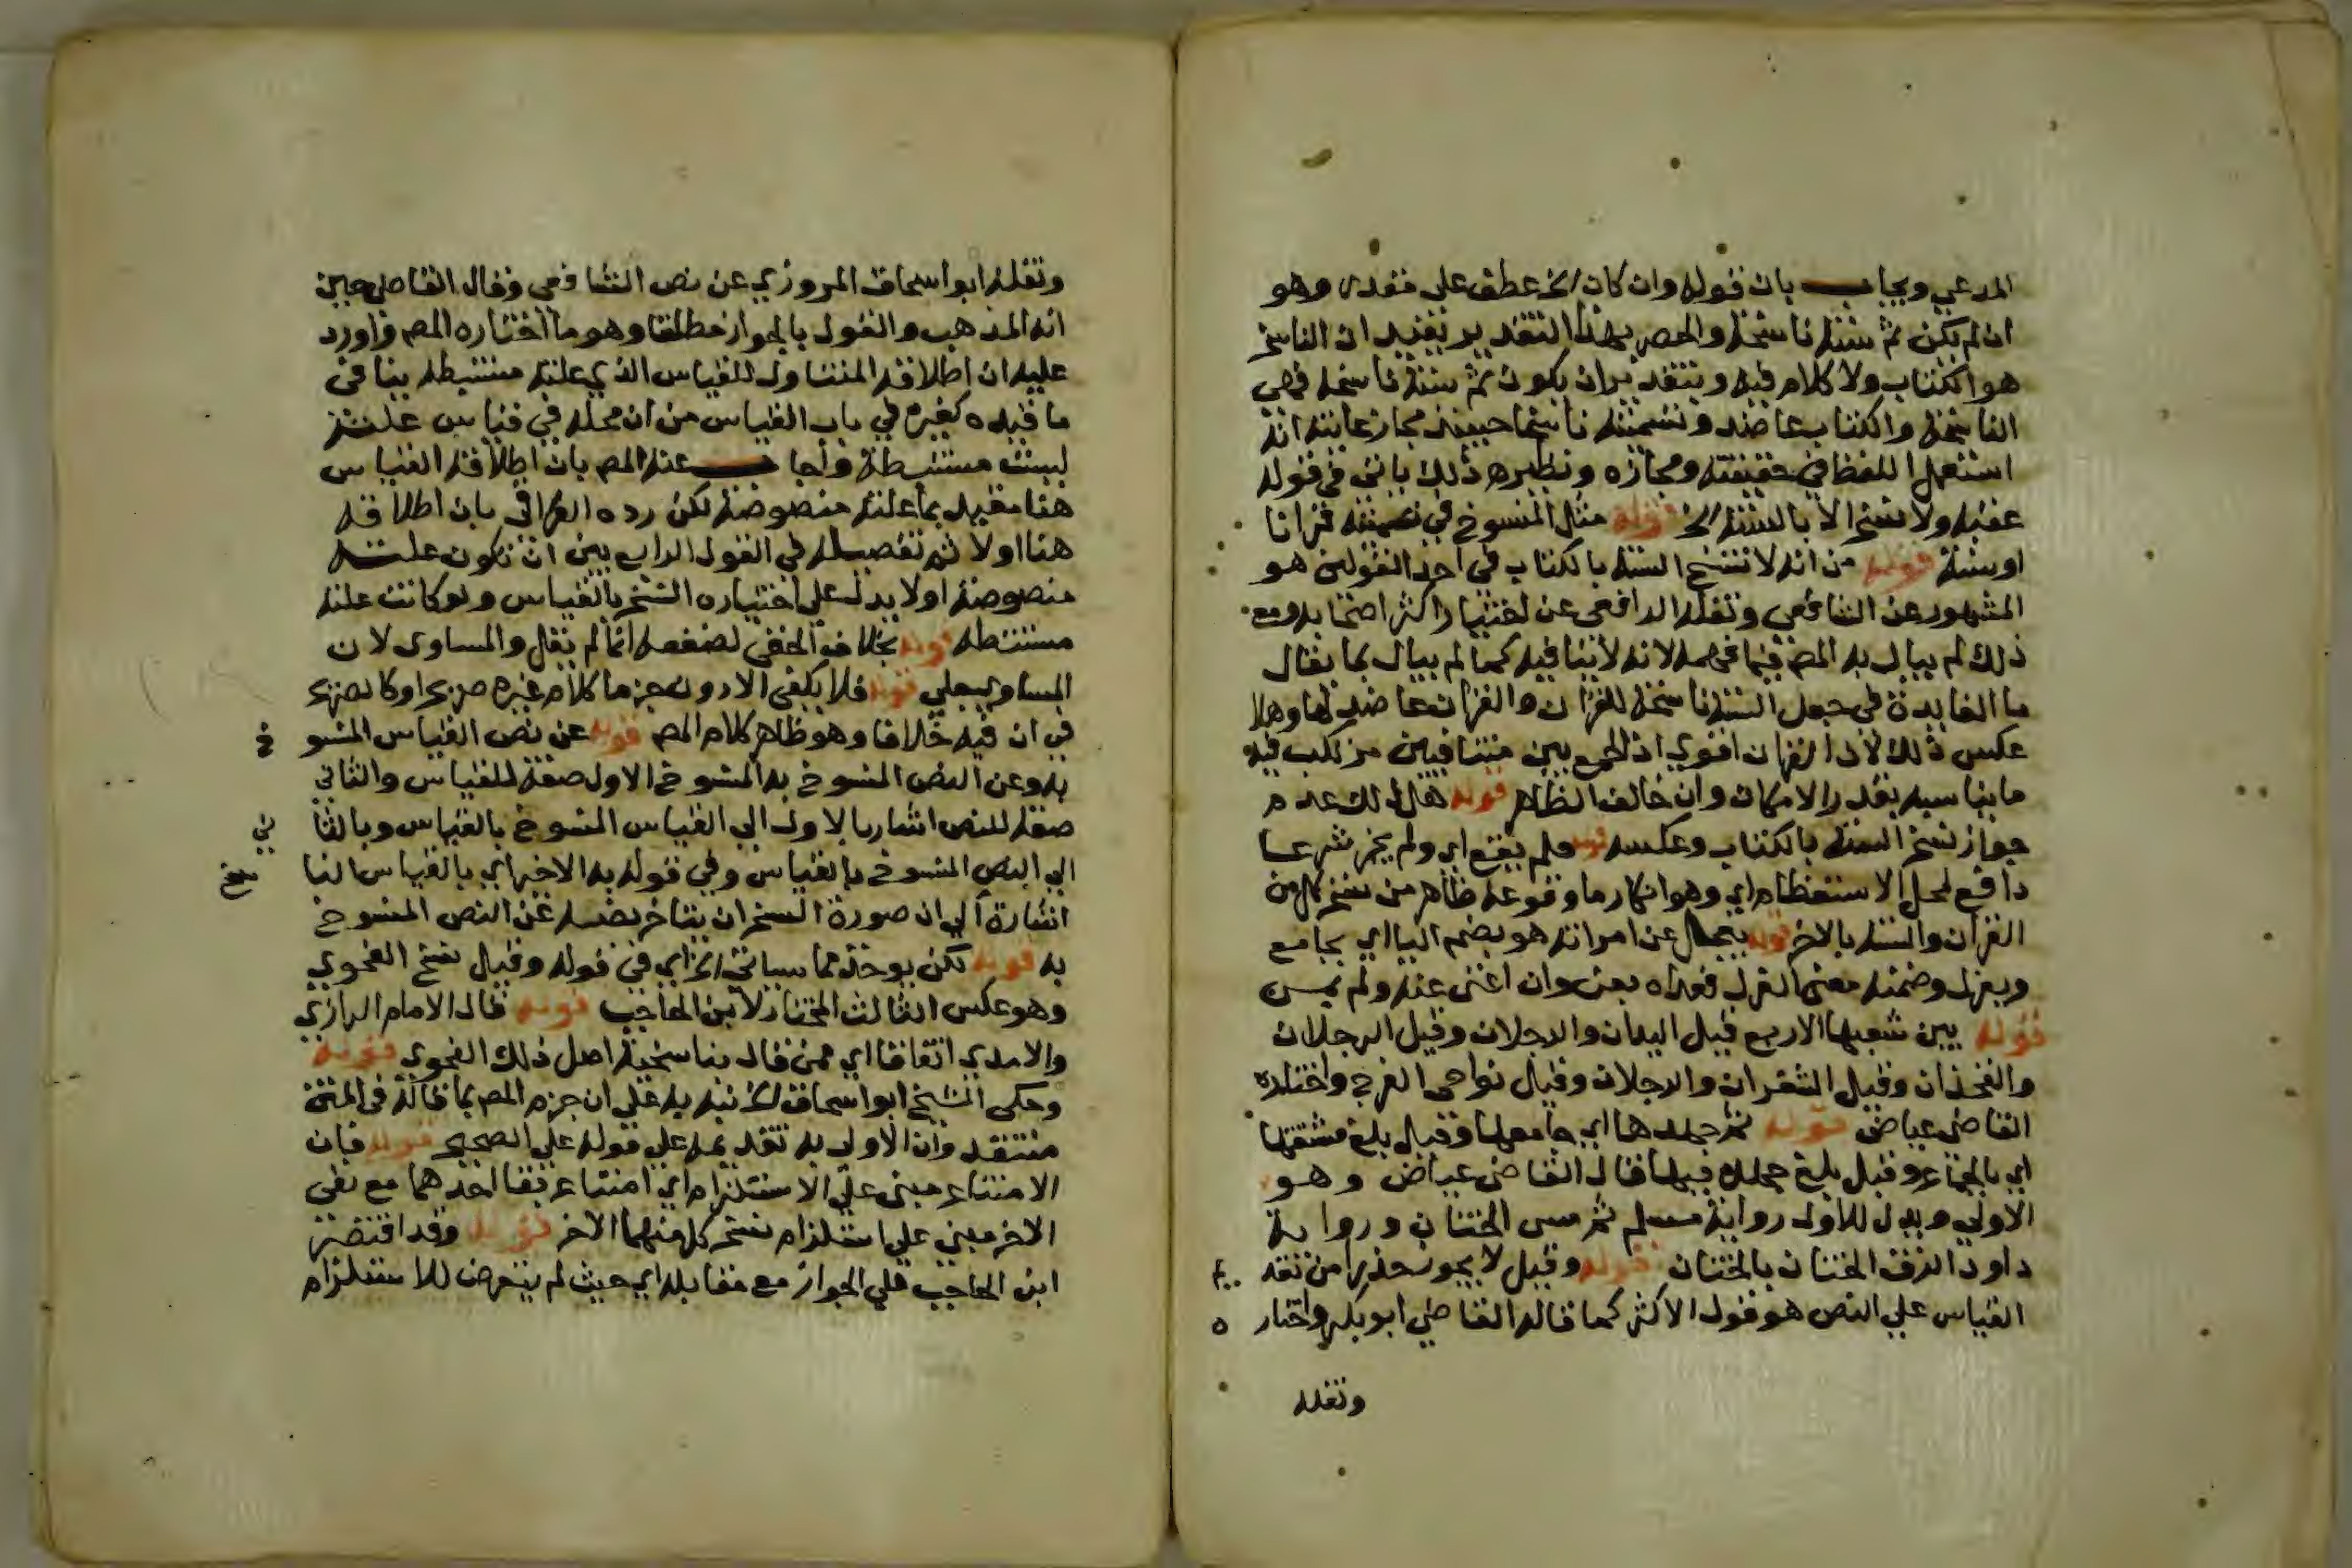 المدعي ويجاب بان قوله وان كان الخ عطف على مقدر وهو
ان لم يكن ثم سنة ناسخة والحصر بهذا التقدير يفيد ان الناسخ
هو الكتاب ولا كلام فيه وبتقدير ان يكون ثم سنة ناسخة فهي
الناسخة والكتاب عاضد وتسميته ناسخا حينئذ مجاز غايته انه
استعمل اللفظ في حقيقته ومجازه ونظيره ذلك ياتي في قوله
عقبه ولا نسخ الا بالسنة الخ قوله مثل المنسوخ في تسميته قرانا
او سنة قوله من انه لا تنسخ السنة بالكتاب في احد القولين هو
المشهور عن الشافعي ونقله الرافعي عن اختيار اكثر اصحابه ومع
ذلك لم يبال به المصر فيما فهمه لانه لا ينافيه كما لم يبال بما يقال
ما الفايدة في جعل السنة ناسخة للقران والقران عاضد لها وهلا
عكس ذلك لان القران اقوي اذ الجمع بين متنافيين مرتكب فيه
ما يناسبه بقدر الامكان وان خالف الظاهر قوله هل لذلك عدم
جواز نسخ السنة بالكتاب وعكسه قوله فلم يقع اي ولم يجز شرعا
دافع لمحل الاستعظام اي وهو انكار ما وقوعه ظاهر من نسخ كل من
القران والسنة بالاخر قوله يعجل عن امراته هو بضم اليا اي يجامع
ويعزل وضمنه معنى العزل فعداه بعن وان اغنى عنه ولم يمن
قوله بين شعبها الاربع قيل اليدان والرجلان وقيل الرجلان
والفخذان وقيل الشفران والرجلان وقيل نواحي الفرج واختاره
القاضي عياض قوله ثم جهدها اي جامعها وقيل بلغ مشقتها
اي بالجماع وقيل بلغ جهده فيها قال القاضي عياض وهو
الاولي ويدل للاول رواية مسلم ثم مس الختان ورواية
داود الزق الختان بالختان قوله وقيل لا يجوز حذرا من تقديم
القياس علي النص هو قول الاكثر كما قاله القاضي ابو بكر واختاره
ونقله
ونقله ابو اسحاق المروزي عن نص الشافعي وقال القاضي حسين
انه المذهب والقول بالجواز مطلقا وهو ما اختاره المصر واورد
عليه ان اطلاقه المتناول للقياس الذي علته مستنبطة ينافي
ما قيده كغيره في باب القياس من ان محله في قياس علته
ليست مستنبطة واجاب عنه المصر بان اطلاقه القياس
هنا مقيد بما علته منصوصة لكن رده العراقي بان اطلاقه
هنا اولا ثم تفصيله في القول الرابع بين ان تكون علته
منصوصة اولا يدل علي اختياره النسخ بالقياس ولو كانت علته
مستنبطة قوله بخلاف الخفي لضعفه انما لم يقل والمساوي لان
المساوي جلي قوله فلا يكفي الادون جزما كلام غيره صريح او كالصريح
في ان فيه خلافا وهو ظاهر كلام المصر قوله عن نص القياس المنسوخ
به وعن النص المنسوخ به المنسوخ الاول صفة للقياس والثاني
صفة للنص اشار بالاول الي القياس المنسوخ بالقياس وبالثاني
الي النص المنسوخ بالقياس وفي قوله به الاخير اي بالقياس الناسخ
اشارة الي ان صورة النسخ ان يتاخر نصه عن النص المنسوخ
به قوله لكن يوخذ مما سياتي الخ اي في قوله وقيل نسخ الفحوي
وهو عكس الثالث المختار لابن الحاجب قوله قال الامام الرازي
والامدي اتفاقا اي ممن قال بناسخية اصل ذلك الفحوي قوله
وحكى الشيخ ابو اسحاق الخ نبه به علي ان جزم المصر بما قاله في المتن
منتقد وان الاولي به تقديمه علي قوله علي الصحيح قوله فان
الامتناع مبني علي الاستلزام اي امتناع بقا احدهما مع نفي
الاخر مبني علي استلزام نسخ كل منهما الاخر قوله وقد اقتصر
ابن الحاجب علي الجواز مع مقابله اي حيث لم يتعرض للاستلزام